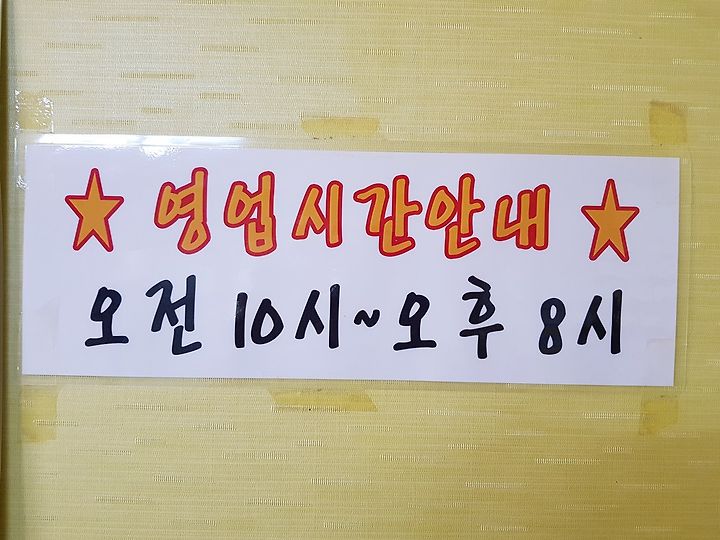 ★ 영업시간안내 ★
오전 10시~오후 8시